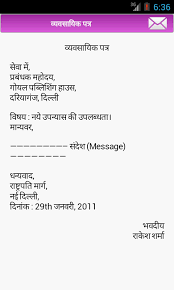 3G 6:36
व्यवसायिक पत्र
व्यवसायिक पत्र
सेवा में,
प्रबंधक महोदय,
गोयल पब्लिशिंग हाउस,
दरियागंज, दिल्ली
विषय : नये उपन्यास की उपलब्धता।
मान्यवर,
—————————– संदेश (Message)
————————
धन्यवाद,
राष्ट्रपति मार्ग,
नई दिल्ली,
दिनांक : 29th जनवरी, 2011
भवदीय
राकेश शर्मा